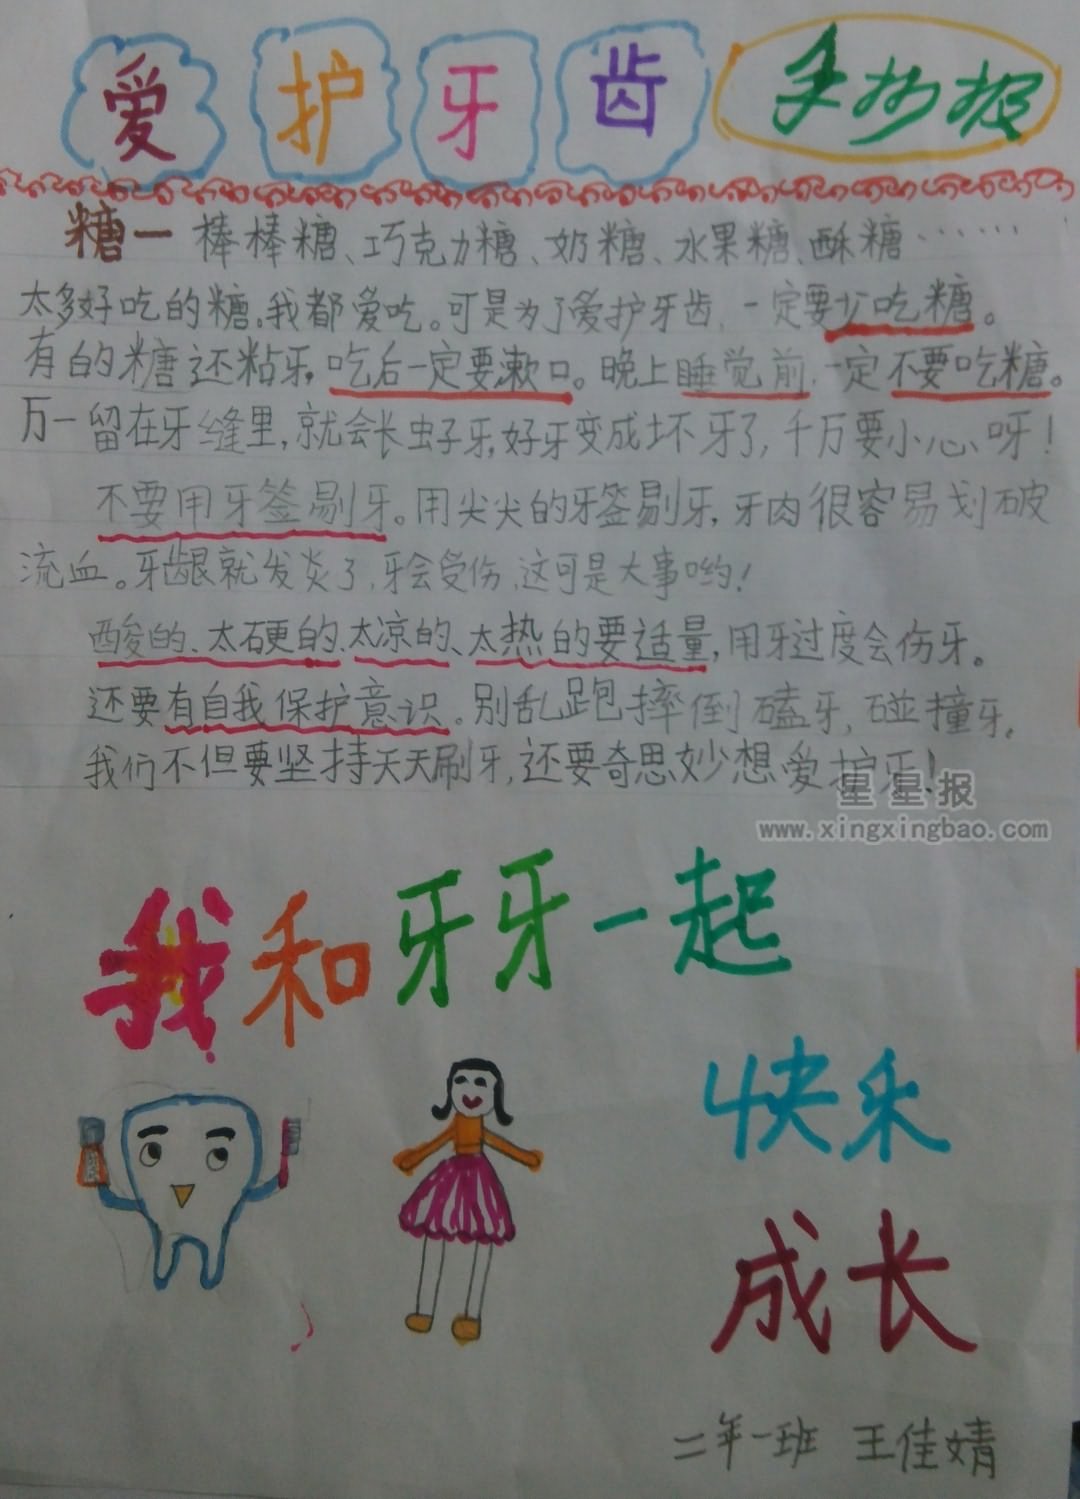 爱护牙齿 手抄报
糖一 棒棒糖、巧克力糖、奶糖、水果糖、酥糖……
太多好吃的糖。我都爱吃。可是为了爱护牙齿，一定要少吃糖。
有的糖还粘牙，吃后一定要漱口。晚上睡觉前，一定不要吃糖。
万一留在牙缝里，就会长虫子牙，好牙变成坏牙了，千万要小心呀！
不要用牙签剔牙。用尖尖的牙签剔牙，牙肉很容易划破
流血。牙龈就发炎了，牙会受伤，这可是大事哟！
酸的、太硬的、太凉的、太热的要适量，用牙过度会伤牙。
还要有自我保护意识。别乱跑摔倒磕牙，碰撞牙。
我们不但要坚持天天刷牙，还要奇思妙想爱护牙！
星星报
www.xingxingbao.com
我和牙牙一起
快乐
成长
二年一班 王佳婧